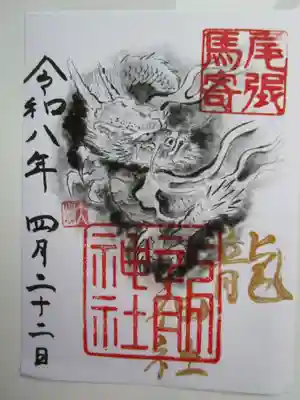 尾張
馬寄
龍
神社
神社
令和八年 四月二十二日